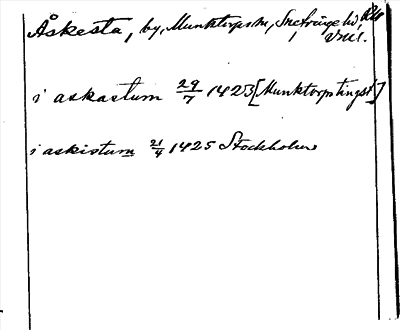 Åskesta, by, Munktorps sn, Snevringe hd,
Vml.
i askastum 29/7 1423 [Munktorps tingst]
i askistum 21/4 1425 Stockholm